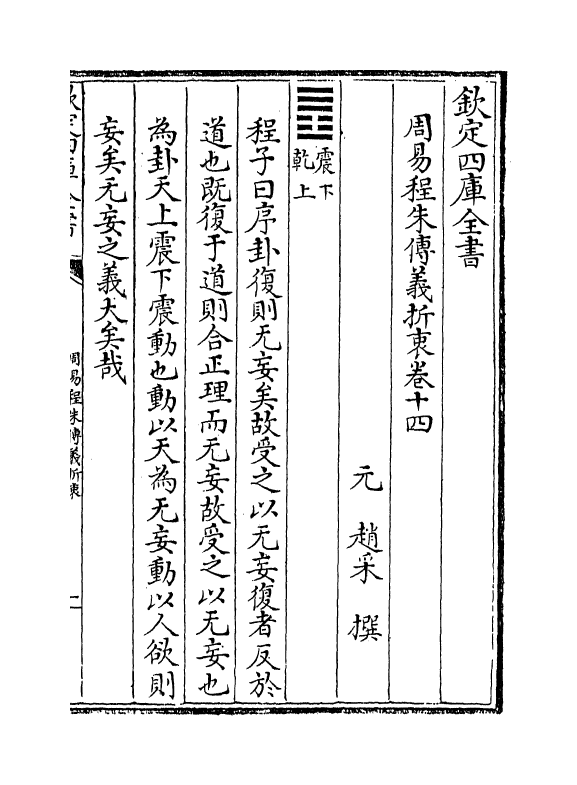 欽定四庫全書
周易程朱傳義折衷卷十四
元 趙采 撰
震下
乾上
程子曰序卦復則无妄矣故受之以无妄復者反於
道也既復于道則合正理而无妄故受之以无妄也
為卦天上震下震動也動以天為无妄動以人欲則
妄矣无妄之義大矣哉
周易程朱傳義折衷
一